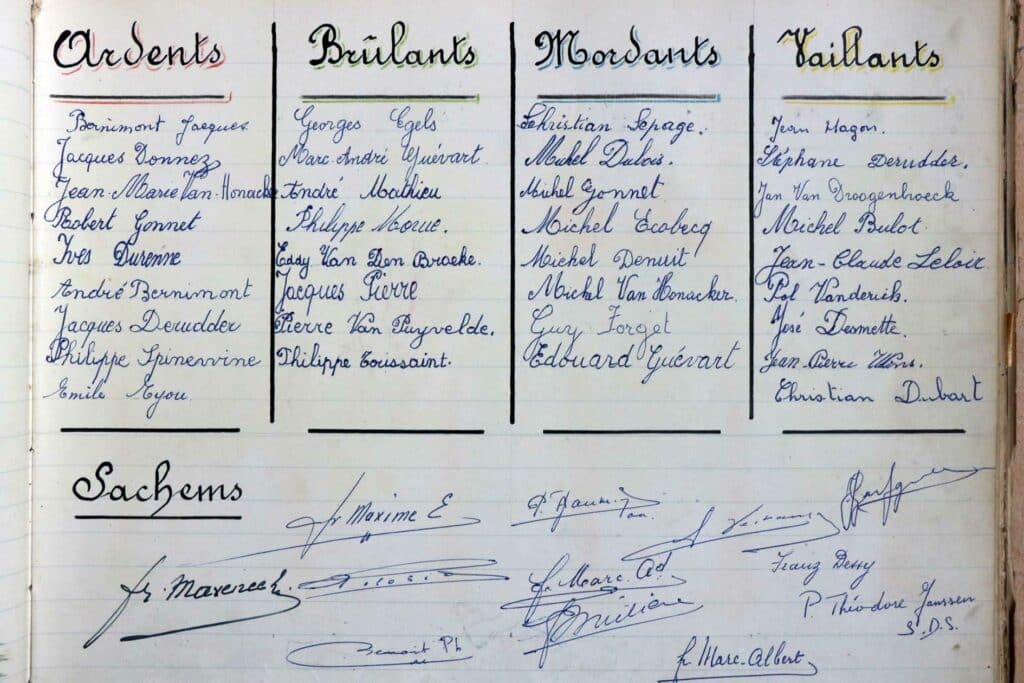 Ardents
Bernimont Jacques
Jacques Donnez
Jean-Marie Van-Honacker
Robert Gonnet
Yves Durenne
André Bernimont
Jacques Derudder
Philippe Spinewine
Emile
Brûlants
Georges Egels
Marc-André Guévart
André Mathieu
Philippe
Eddy Van Den Broeke.
Jacques Pierre
Pierre Van Puyvelde.
Philippe Toussaint.
Mordants
Christian Lepage.
Michel Dubois.
Michel Gonnet
Michel Ecobecq
Michel Denuit
Michel Van Honacker.
Guy Forget
Edouard Guévart
Vaillants
Jean Hagon.
Stéphane Derudder.
Jan Van Droogenbroeck
Michel Bulot
Jean-Claude Leloir
Pol Vanderich.
José Desmette.
Jean-Pierre
Christian Dubart
Sachems
fr Maxime E
Franz Dessy
fr. Marc. Ad
P. Théodore Janssen
S.D.S.
Benoit Ph
fr Marc-Albert